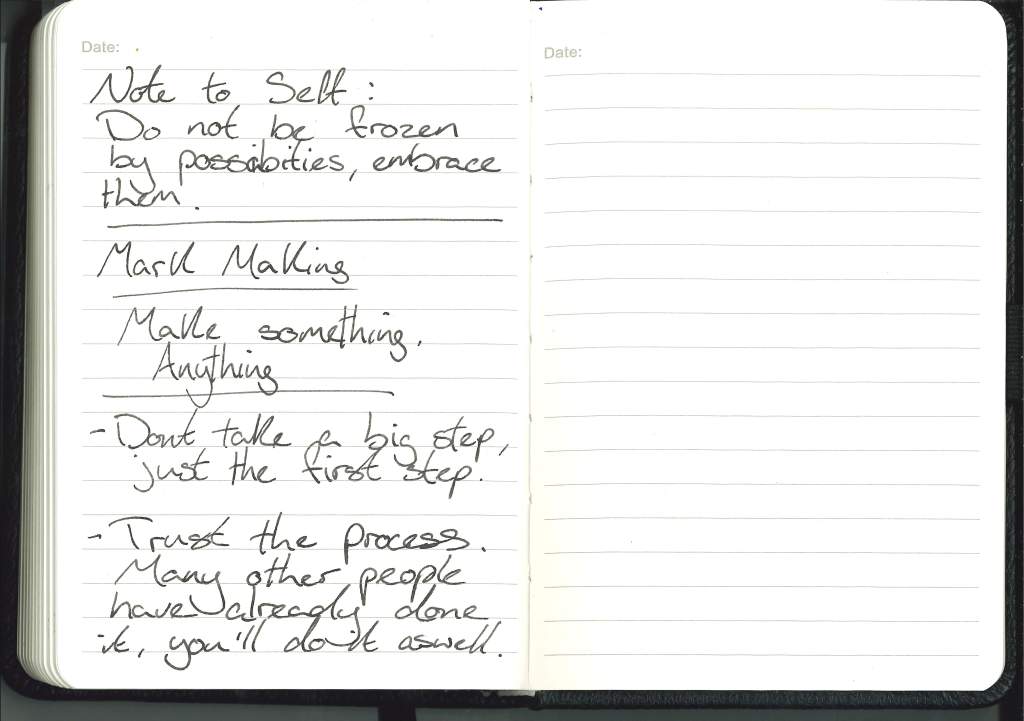 Date:
Note to Self:
Do not be frozen
by possibities, embrace
them.
Mark Making
Make something.
Anything
- Dont take a big step,
just the first step.
- Trust the process.
Many other people
have already done
it, you'll do it aswell.
Date: